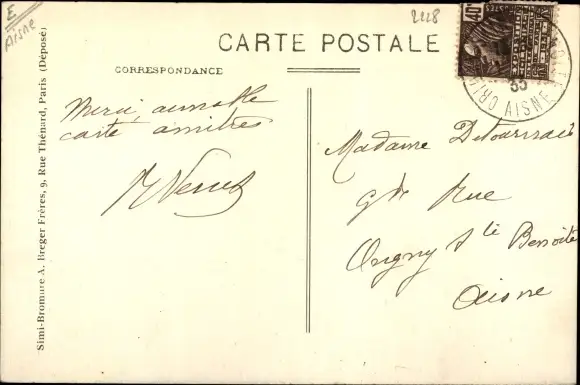 E
Aisne
2228
CARTE POSTALE
CORRESPONDANCE
40
POSTES
ORIG
AISNE
35
Merci, aimable
carte amitiés
Madame
Gde Rue
Origny Ste Benoite
Aisne
Simi-Bromure A. Breger Frères, 9, Rue Thénard, Paris (Déposé)